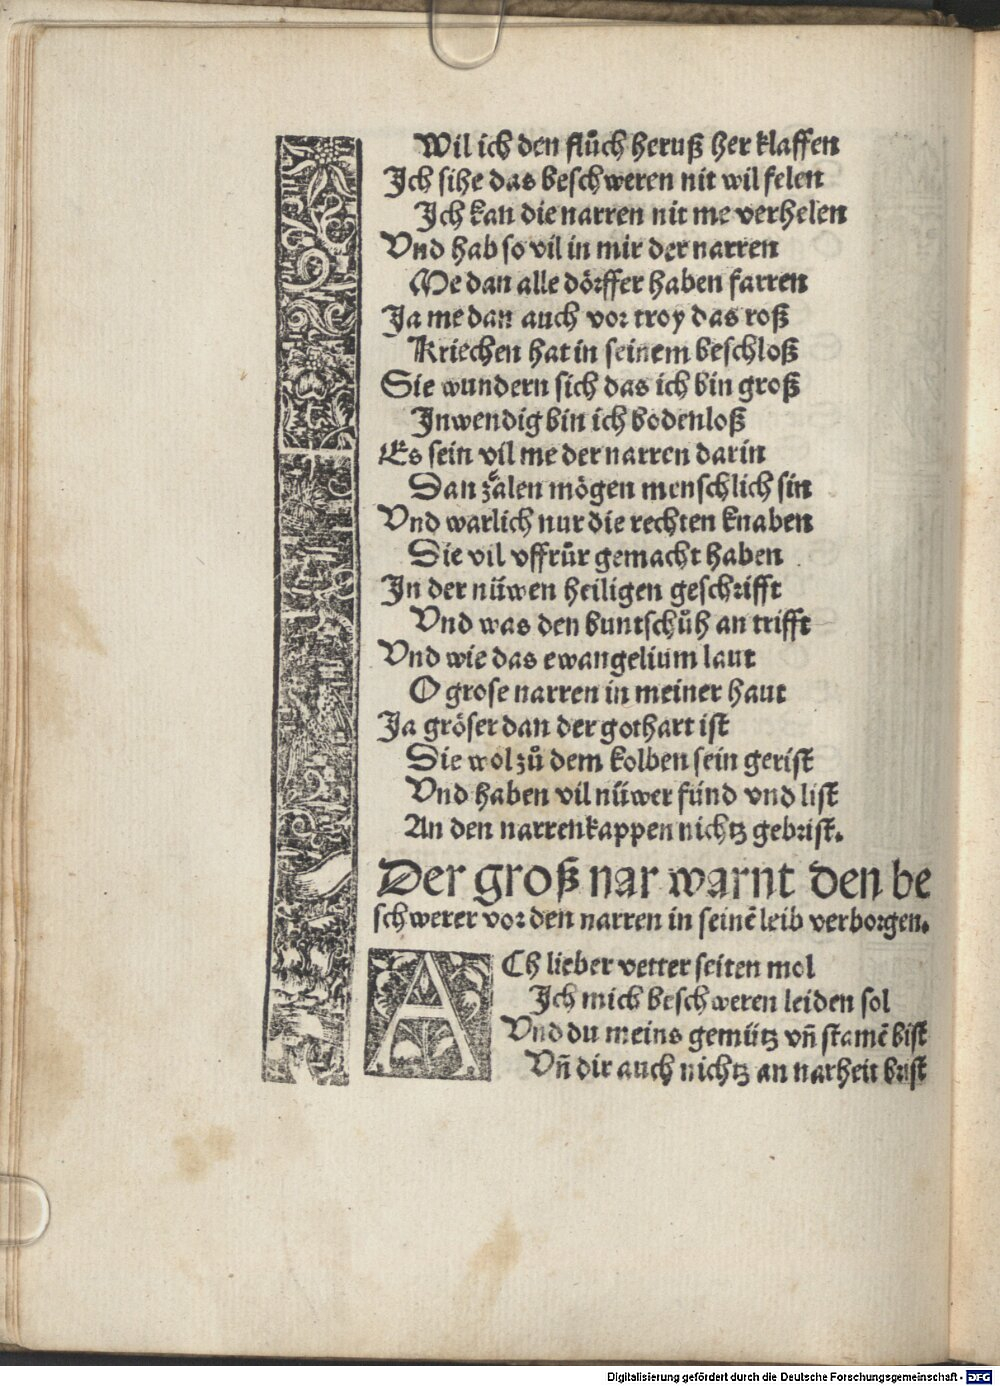 Wil ich den flůch heruß her klaffen
Ich sihe das beschweren nit wil felen
Ich kan die narren nit me verhelen
Vnd hab so vil in mir der narren
Me dan alle dörffer haben farren
Ja me dan auch vor troy das roß
Kriechen hat in seinem beschloß
Sie wundern sich das ich bin groß
Inwendig bin ich bodenloß
Es sein vil me der narren darin
Dan zälen mögen menschlich sin
Vnd warlich nur die rechten knaben
Die vil vffrůr gemacht haben
In der nüwen heiligen geschrifft
Vnd was den buntschůh an trifft
Vnd wie das ewangelium laut
O grose narren in meiner haut
Ja gröser dan der gothart ist
Die wol zů dem kolben sein gerist
Vnd haben vil nüwer fünd vnd list
An den narrenkappen nichtz gebrist.
Der groß nar warnt den be
schwerer vor den narren in seinē leib verborgen.
ACh lieber vetter seiten mol
Ich mich beschweren leiden sol
Vnd du meins gemütz vn̄ stamē bist
Vn̄ dir auch nichtz an narheit brist
Digitalisierung gefördert durch die Deutsche Forschungsgemeinschaft - DFG